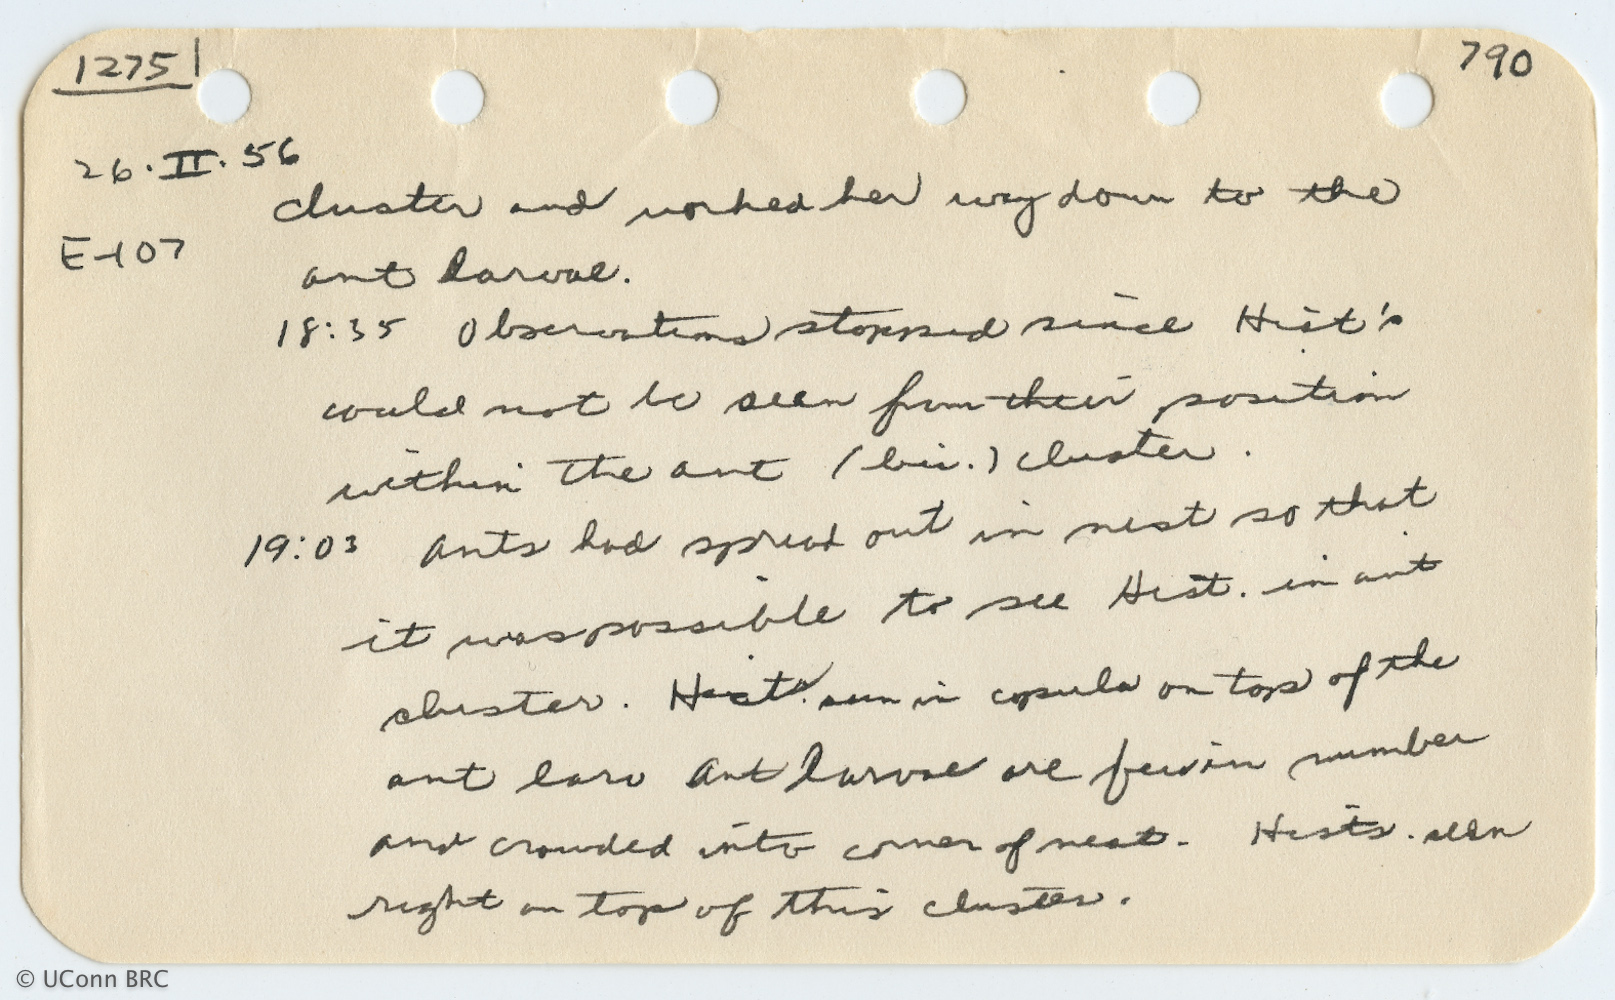 1275
790
26.II.56
cluster and worked her way down to the
E-107
ant larvae.
18:35 Observations stopped since Hist's
could not be seen from their position
within the ant (biv.) cluster.
19:03 Ants had spread out in nest so that
it was possible to see Hist. in ant
cluster. Hist's. seen in copula on top of the
ant larv Ant larvae are few in number
and crowded into corner of nest. Hists. seen
right on top of this cluster.
© UConn BRC